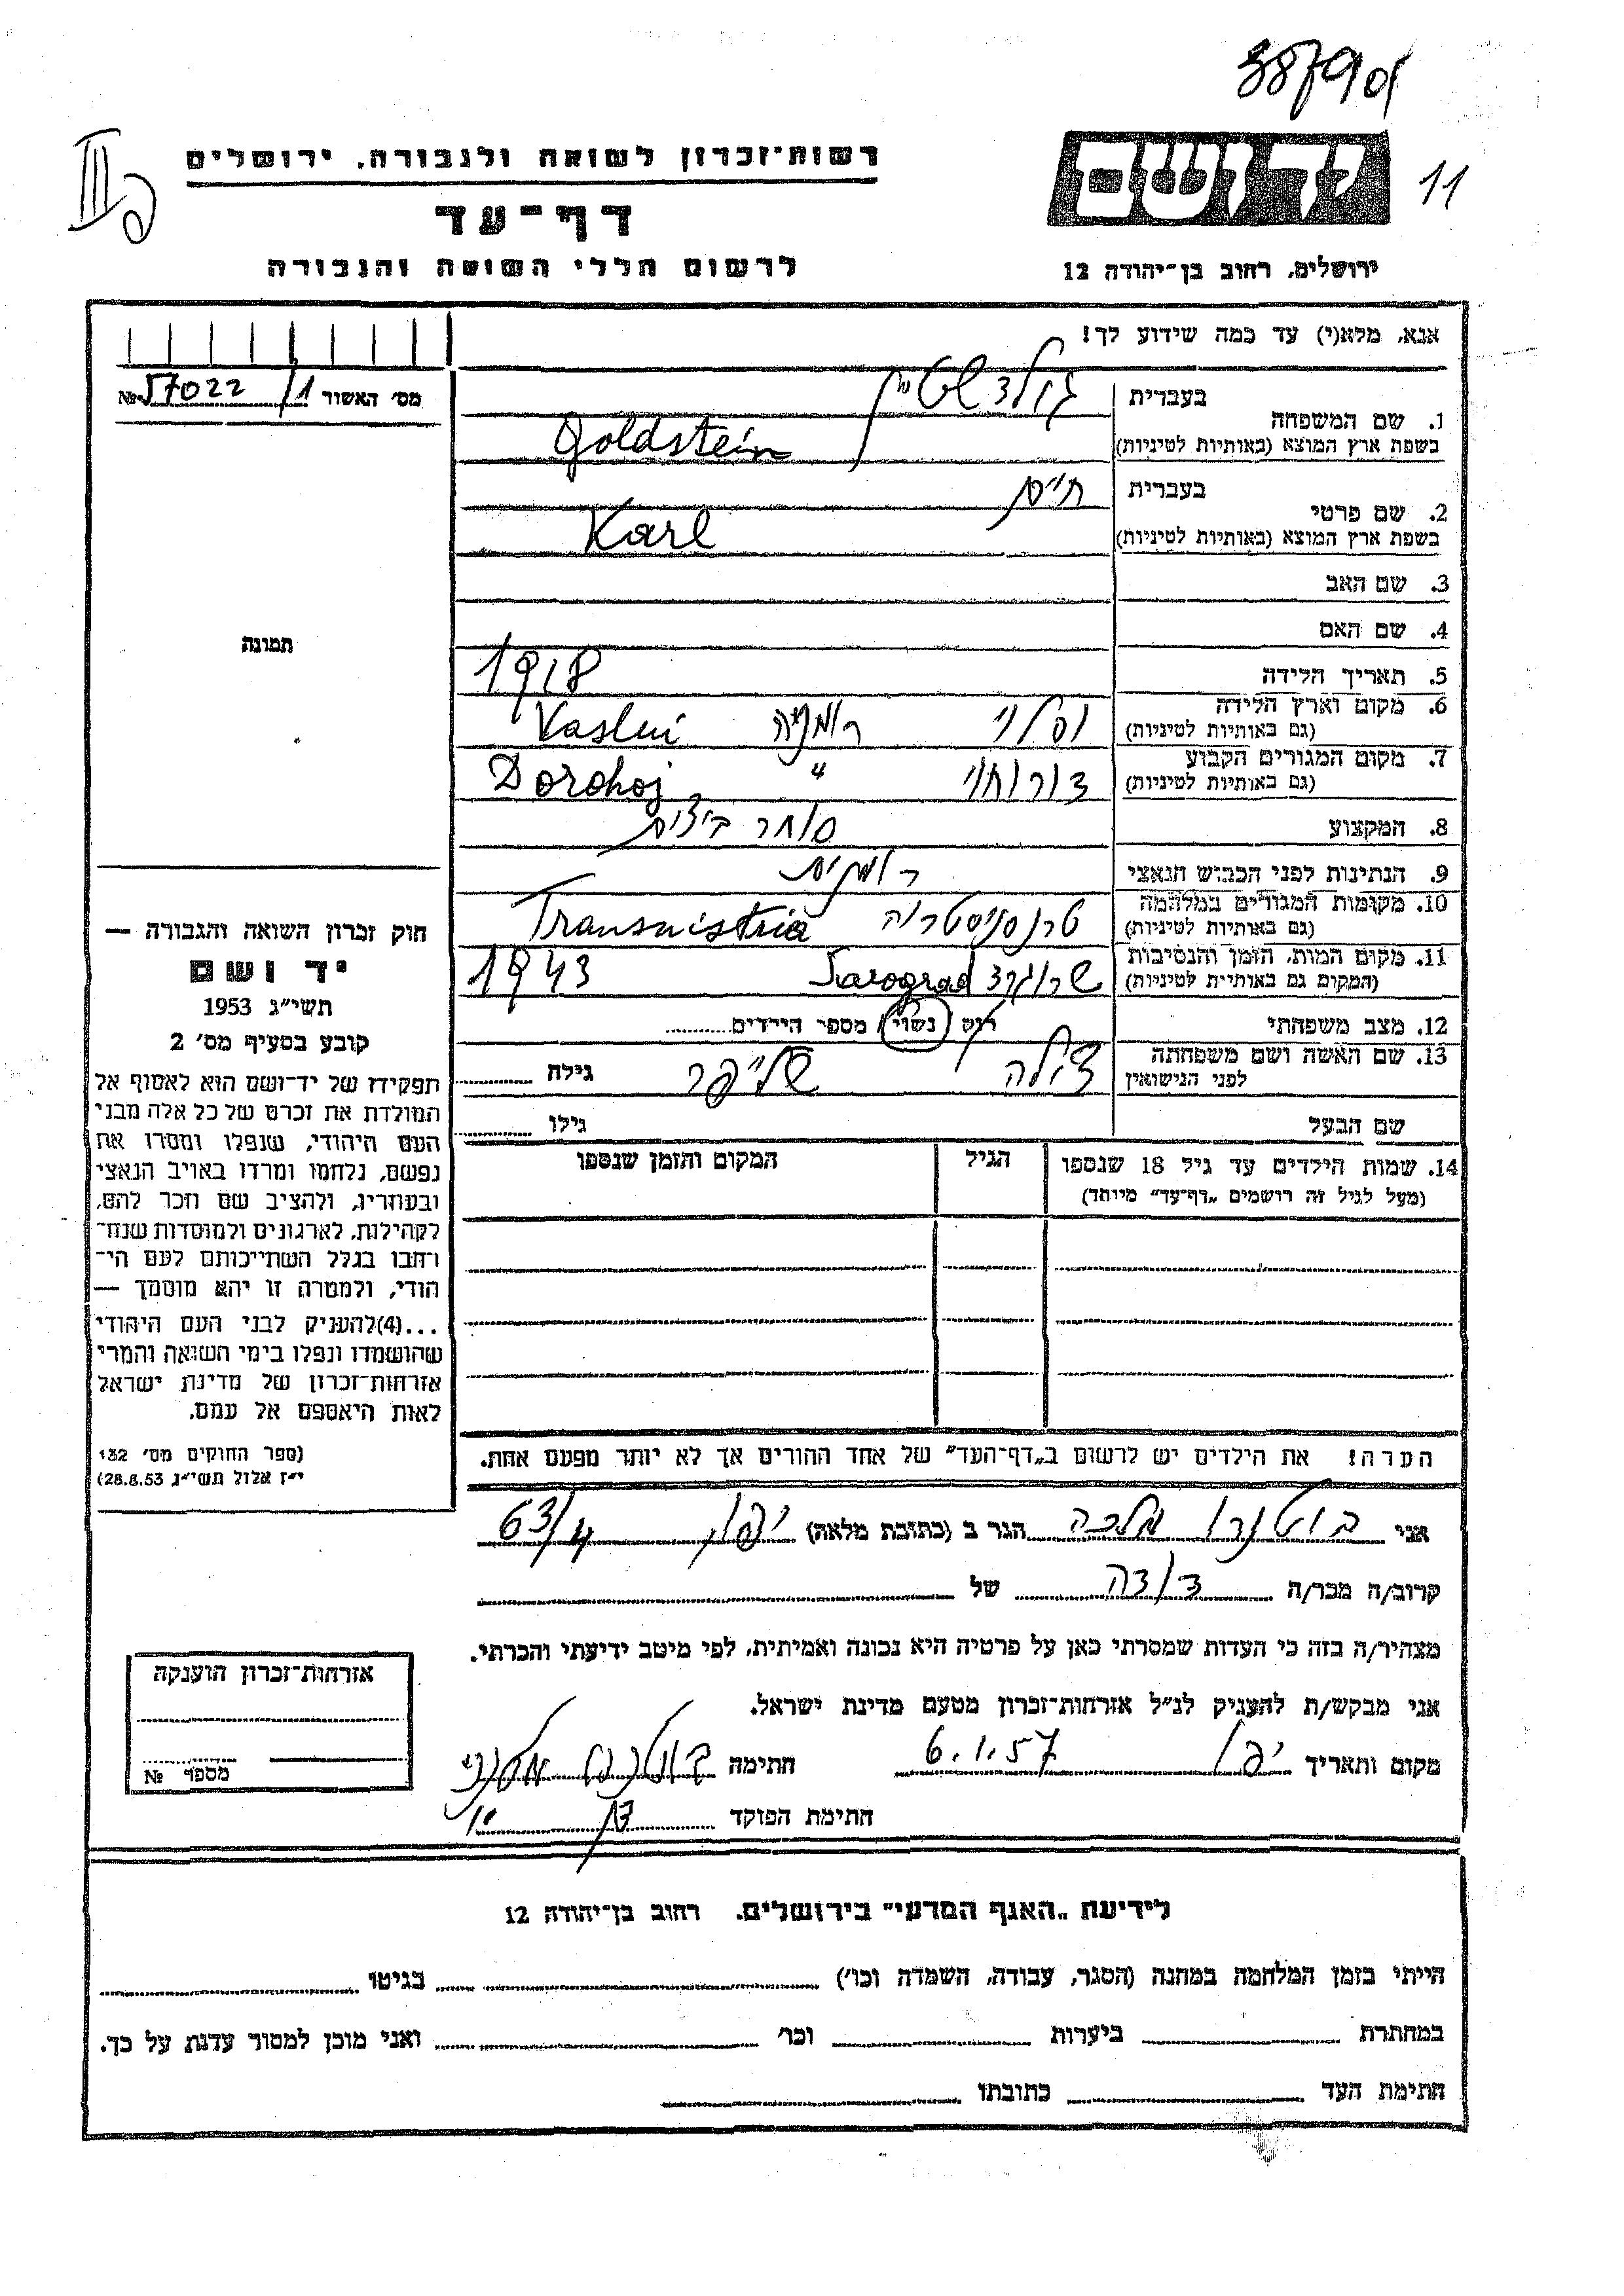 38790
11
IIב
יד ושם
רשות־זכרון לשואה ולגבורה, ירושלים
דף־עד
לרשום חללי השואה והגבורה
ירושלים, רחוב בן־יהודה 12
אנא, מלא(י) עד כמה שידוע לך!
מס׳ האשור 1/57022 №
1. שם המשפחה
בעברית גולדשטיין
בשפת ארץ המוצא (באותיות לטיניות) Goldstein
2. שם פרטי
בעברית חיים
בשפת ארץ המוצא (באותיות לטיניות) Karl
3. שם האב
4. שם האם
5. תאריך הלידה 1918
6. מקום וארץ הלידה
(גם באותיות לטיניות) וסלוי רומניה Vaslui
7. מקום המגורים הקבוע
(גם באותיות לטיניות) דורוחוי " Dorohoj
8. המקצוע סוחר ביצים
9. הנתינות לפני הכבוש הנאצי רומנית
10. מקומות המגורים במלחמה
(גם באותיות לטיניות) טרנסניסטריה Transnistria
11. מקום המות, הזמן והנסיבות
(המקום גם באותיות לטיניות) שרוגרד Sarograd 1943
12. מצב משפחתי רוק / נשוי / מספר הילדים
13. שם האשה ושם משפחתה
לפני הנישואין צילה גילה
שם הבעל גילו
14. שמות הילדים עד גיל 18 שנספו
(מעל לגיל זה רושמים „דף־עד” מיוחד)
הגיל
המקום והזמן שנספו
הערה! את הילדים יש לרשום ב„דף־העד” של אחד ההורים אך לא יותר מפעם אחת.
תמונה
חוק זכרון השואה והגבורה —
יד ושם
תשי״ג 1953
קובע בסעיף מס׳ 2
תפקידו של יד־ושם הוא לאסוף אל
המולדת את זכרם של כל אלה מבני
העם היהודי, שנפלו ומסרו את
נפשם, נלחמו ומרדו באויב הנאצי
ובעוזריו, ולהציב שם וזכר להם,
לקהילות, לארגונים ולמוסדות שנח־
רבו בגלל השתייכותם לעם הי־
הודי, ולמטרה זו יהא מוסמך —
...(4)להעניק לבני העם היהודי
שהושמדו ונפלו בימי השואה והמרי
אזרחות־זכרון של מדינת ישראל
לאות היאספם אל עמם.
(ספר החוקים מס׳ 132
י״ז אלול תשי״ג 28.8.53)
אני מלכה הגר ב (כתובת מלאה) יפו, 63/4
קרוב/ה מכר/ה דודה של
מצהיר/ה בזה כי העדות שמסרתי כאן על פרטיה היא נכונה ואמיתית, לפי מיטב ידיעתי והכרתי.
אני מבקש/ת להעניק לנ״ל אזרחות־זכרון מטעם מדינת ישראל.
מקום ותאריך יפו 6.1.57 חתימה
חתימת הפוקד
אזרחות־זכרון הוענקה
מספר №
לידיעת „האגף המדעי” בירושלים, רחוב בן־יהודה 12
הייתי בזמן המלחמה במחנה (הסגר, עבודה, השמדה וכו׳) בגיטו
במחתרת ביערות וכו׳ ואני מוכן למסור עדות על כך.
חתימת העד כתובתו